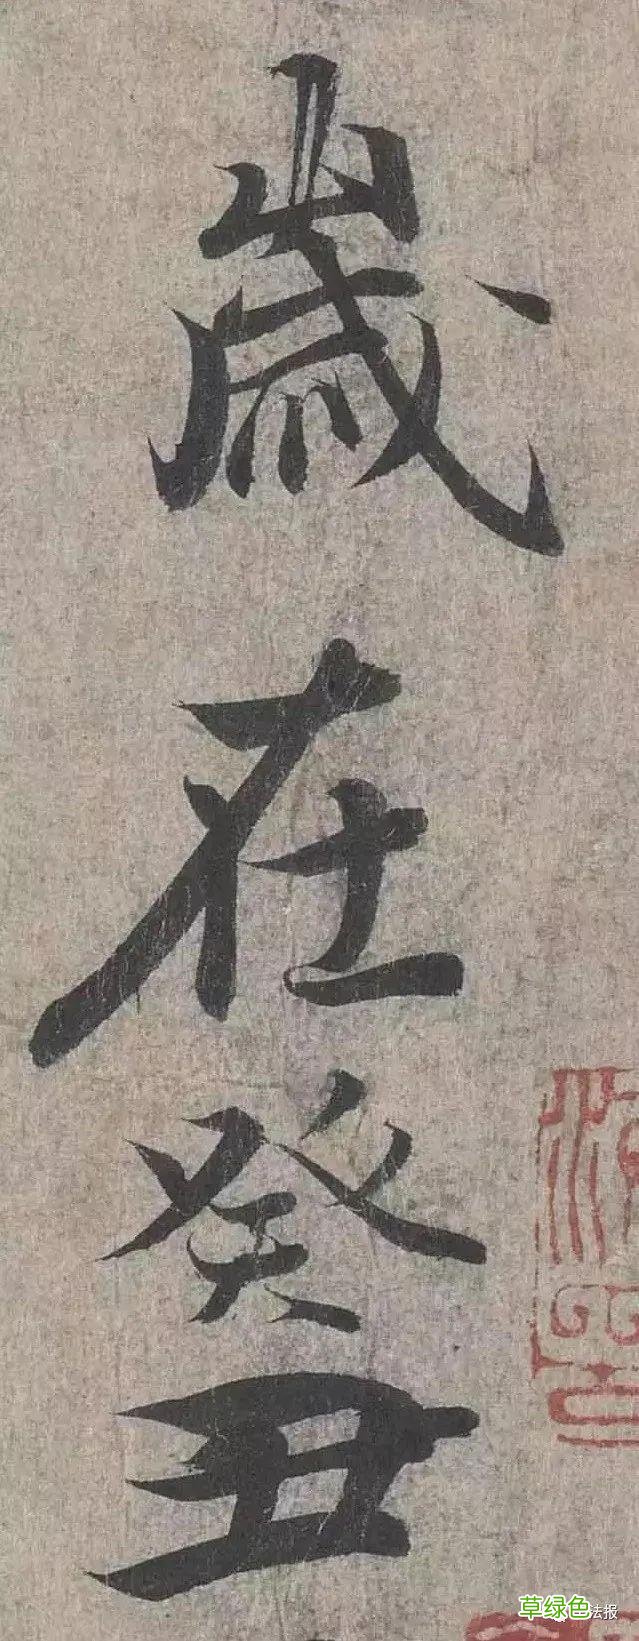 歲在癸丑
草绿色
法报